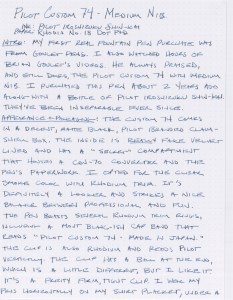 PILOT CUSTOM 74 - MEDIUM NIB
INK: PILOT IROSHIZUKU SHIN-KAI
PAPER: RHODIA NO. 18 DOT PAD
INTRO: MY FIRST REAL FOUNTAIN PEN PURCHASE WAS
FROM GOULET PENS. I ALSO WATCHED HOURS OF
BRIAN GOULET'S VIDEOS. HE ALWAYS PRAISED,
AND STILL DOES, THE PILOT CUSTOM 74 WITH MEDIUM
NIB. I PURCHASED THIS PEN ABOUT 2 YEARS AGO
ALONG WITH A BOTTLE OF PILOT IROSHIZUKU SHIN-KAI.
THEY'VE BEEN INSEPARABLE EVER SINCE.
APPEARANCE & PACKAGING: THE CUSTOM 74 COMES
IN A DECENT, MATTE BLACK, PILOT BRANDED CLAM-
SHELL BOX. THE INSIDE IS REALLY FAKE VELVET
LINING AND HAS A "SECRET" COMPARTMENT
THAT HOUSES A CON-70 CONVERTER AND THE
PEN'S PAPERWORK. I OPTED FOR THE CLEAR
SMOKE COLOR WITH RHODIUM TRIM. IT'S
DEFINITELY A LOOKER, AND STRIKES A NICE
BALANCE BETWEEN PROFESSIONAL AND FUN.
THE PEN BOASTS SEVERAL RHODIUM TRIM RINGS,
INCLUDING A MOST BLACK-ISH CAP BAND THAT
READS "PILOT CUSTOM 74 - MADE IN JAPAN."
THE CLIP IS ALSO RHODIUM AND READS PILOT
VERTICALLY. THE CLIP HAS A BALL AT THE END,
WHICH IS A LITTLE DIFFERENT, BUT I LIKE IT.
IT'S A PRETTY FIRM, TIGHT CLIP. I WEAR MY
PENS HORIZONTALLY ON MY SHIRT PLACKET, UNDER A